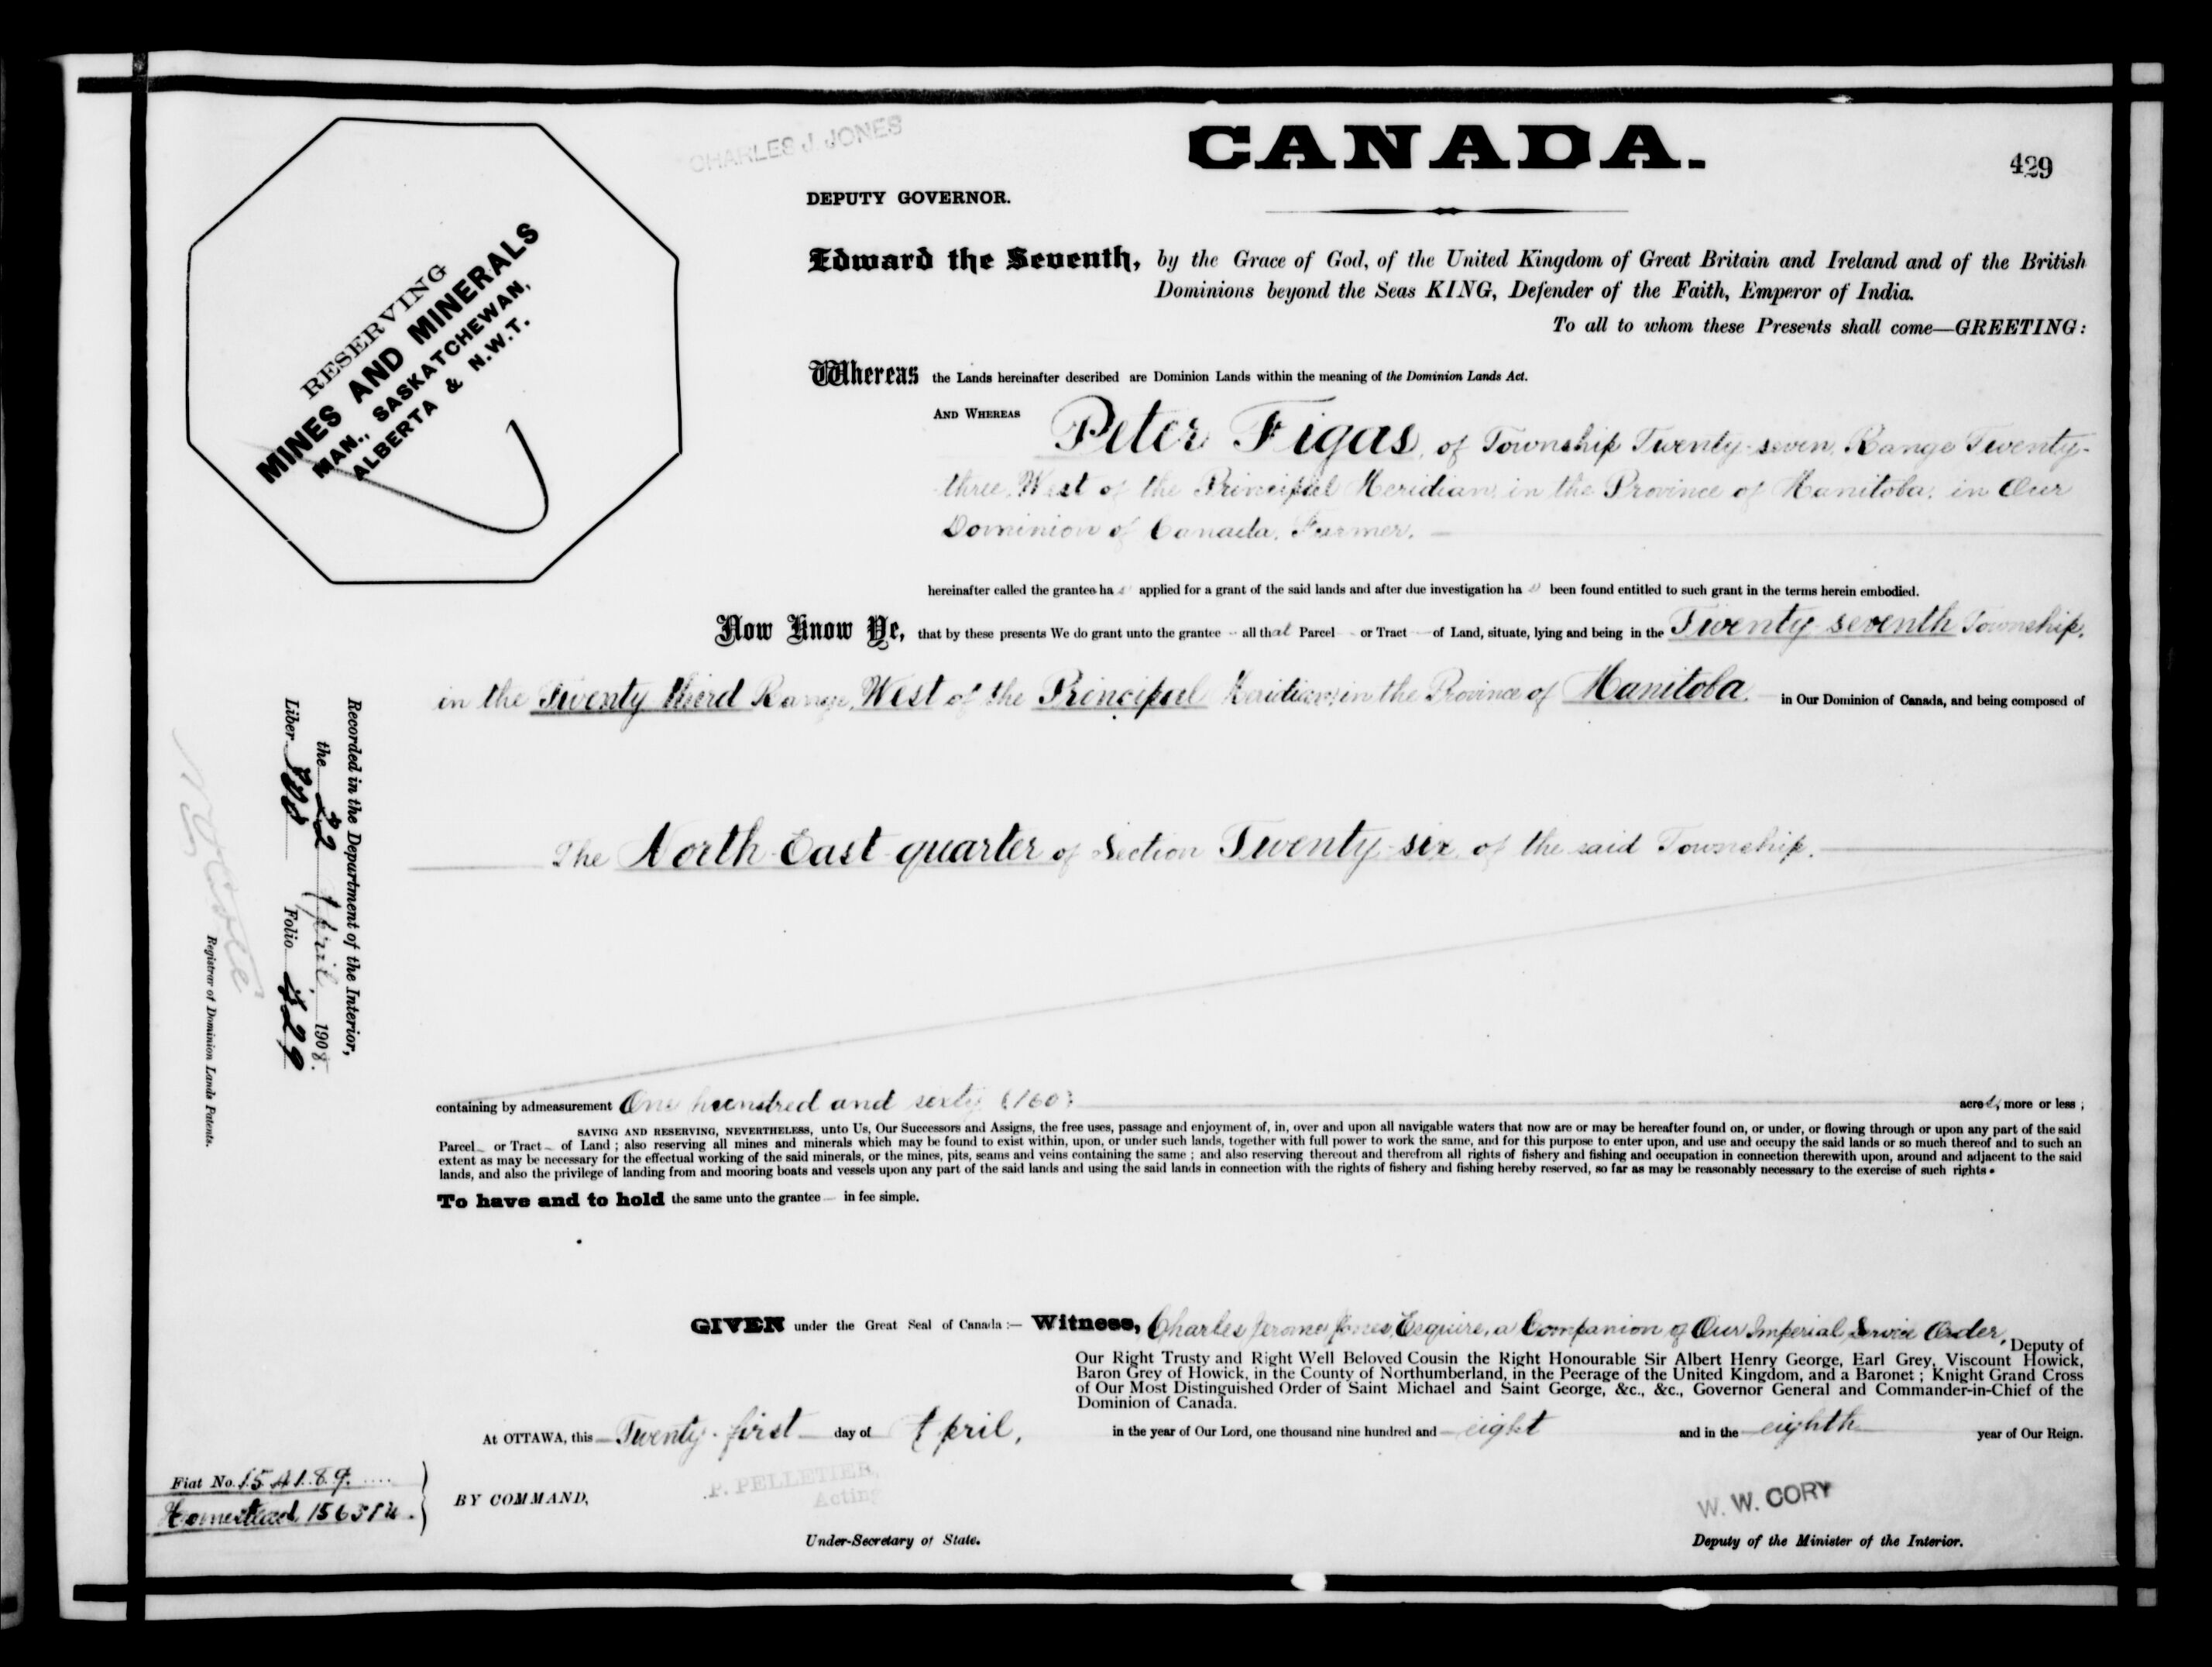 CHARLES J. JONES
CANADA.
429
DEPUTY GOVERNOR.
RESERVING
MINES AND MINERALS
MAN., SASKATCHEWAN,
ALBERTA & N.W.T.
Edward the Seventh, by the Grace of God, of the United Kingdom of Great Britain and Ireland and of the British
Dominions beyond the Seas KING, Defender of the Faith, Emperor of India.
To all to whom these Presents shall come—GREETING:
Whereas the Lands hereinafter described are Dominion Lands within the meaning of the Dominion Lands Act.
AND WHEREAS Peter Figas, of Township Twenty-seven, Range Twenty-
three, West of the Principal Meridian, in the Province of Manitoba, in Our
Dominion of Canada, Farmer.
hereinafter called the grantee has applied for a grant of the said lands and after due investigation has been found entitled to such grant in the terms herein embodied.
Now Know Ye, that by these presents We do grant unto the grantee all that Parcel or Tract of Land, situate, lying and being in the Twenty seventh Township,
in the Twenty third Range, West of the Principal Meridian, in the Province of Manitoba, in Our Dominion of Canada, and being composed of
The North East quarter of Section Twenty-six, of the said Township.
containing by admeasurement One hundred and sixty (160) acres, more or less ;
SAVING AND RESERVING, NEVERTHELESS, unto Us, Our Successors and Assigns, the free uses, passage and enjoyment of, in, over and upon all navigable waters that now are or may be hereafter found on, or under, or flowing through or upon any part of the said
Parcel or Tract of Land ; also reserving all mines and minerals which may be found to exist within, upon, or under such lands, together with full power to work the same, and for this purpose to enter upon, and use and occupy the said lands or so much thereof and to such an
extent as may be necessary for the effectual working of the said minerals, or the mines, pits, seams and veins containing the same ; and also reserving thereout and therefrom all rights of fishery and fishing and occupation in connection therewith upon, around and adjacent to the said
lands, and also the privilege of landing from and mooring boats and vessels upon any part of the said lands and using the said lands in connection with the rights of fishery and fishing hereby reserved, so far as may be reasonably necessary to the exercise of such rights.
To have and to hold the same unto the grantee in fee simple.
Recorded in the Department of the Interior,
the 22 April 1908.
Liber Folio 429
Registrar of Dominion Lands Patents.
GIVEN under the Great Seal of Canada :— Witness, Charles Jerome Jones, Esquire, a Companion of Our Imperial Service Order, Deputy of
Our Right Trusty and Right Well Beloved Cousin the Right Honourable Sir Albert Henry George, Earl Grey, Viscount Howick,
Baron Grey of Howick, in the County of Northumberland, in the Peerage of the United Kingdom, and a Baronet ; Knight Grand Cross
of Our Most Distinguished Order of Saint Michael and Saint George, &c., &c., Governor General and Commander-in-Chief of the
Dominion of Canada.
At OTTAWA, this Twenty-first day of April, in the year of Our Lord, one thousand nine hundred and eight and in the eighth year of Our Reign.
Fiat No. 154189.
Homestead
BY COMMAND,
P. PELLETIER,
Acting
Under-Secretary of State.
W. W. CORY
Deputy of the Minister of the Interior.